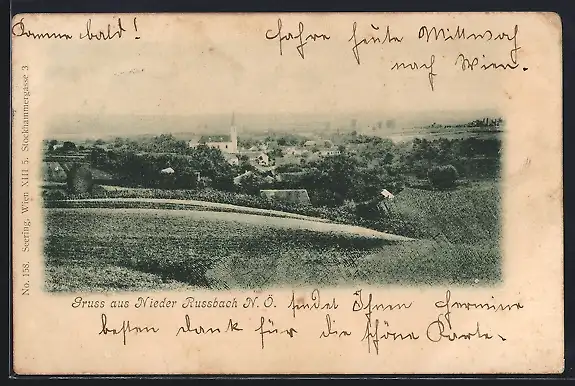 Komme bald!
Fahre heute Mittwoch
nach Wien.
No. 158. Seering, Wien XIII 5. Stockhammergasse 3
Gruss aus Nieder Russbach N. Ö. findet Ihnen Hermine
besten Dank für die schöne Karte.